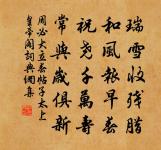 瑞雪收殘臘
和風報早春
祝堯千萬壽
常與歲俱新
周必大立春帖子太上
皇帝閣詞典網集